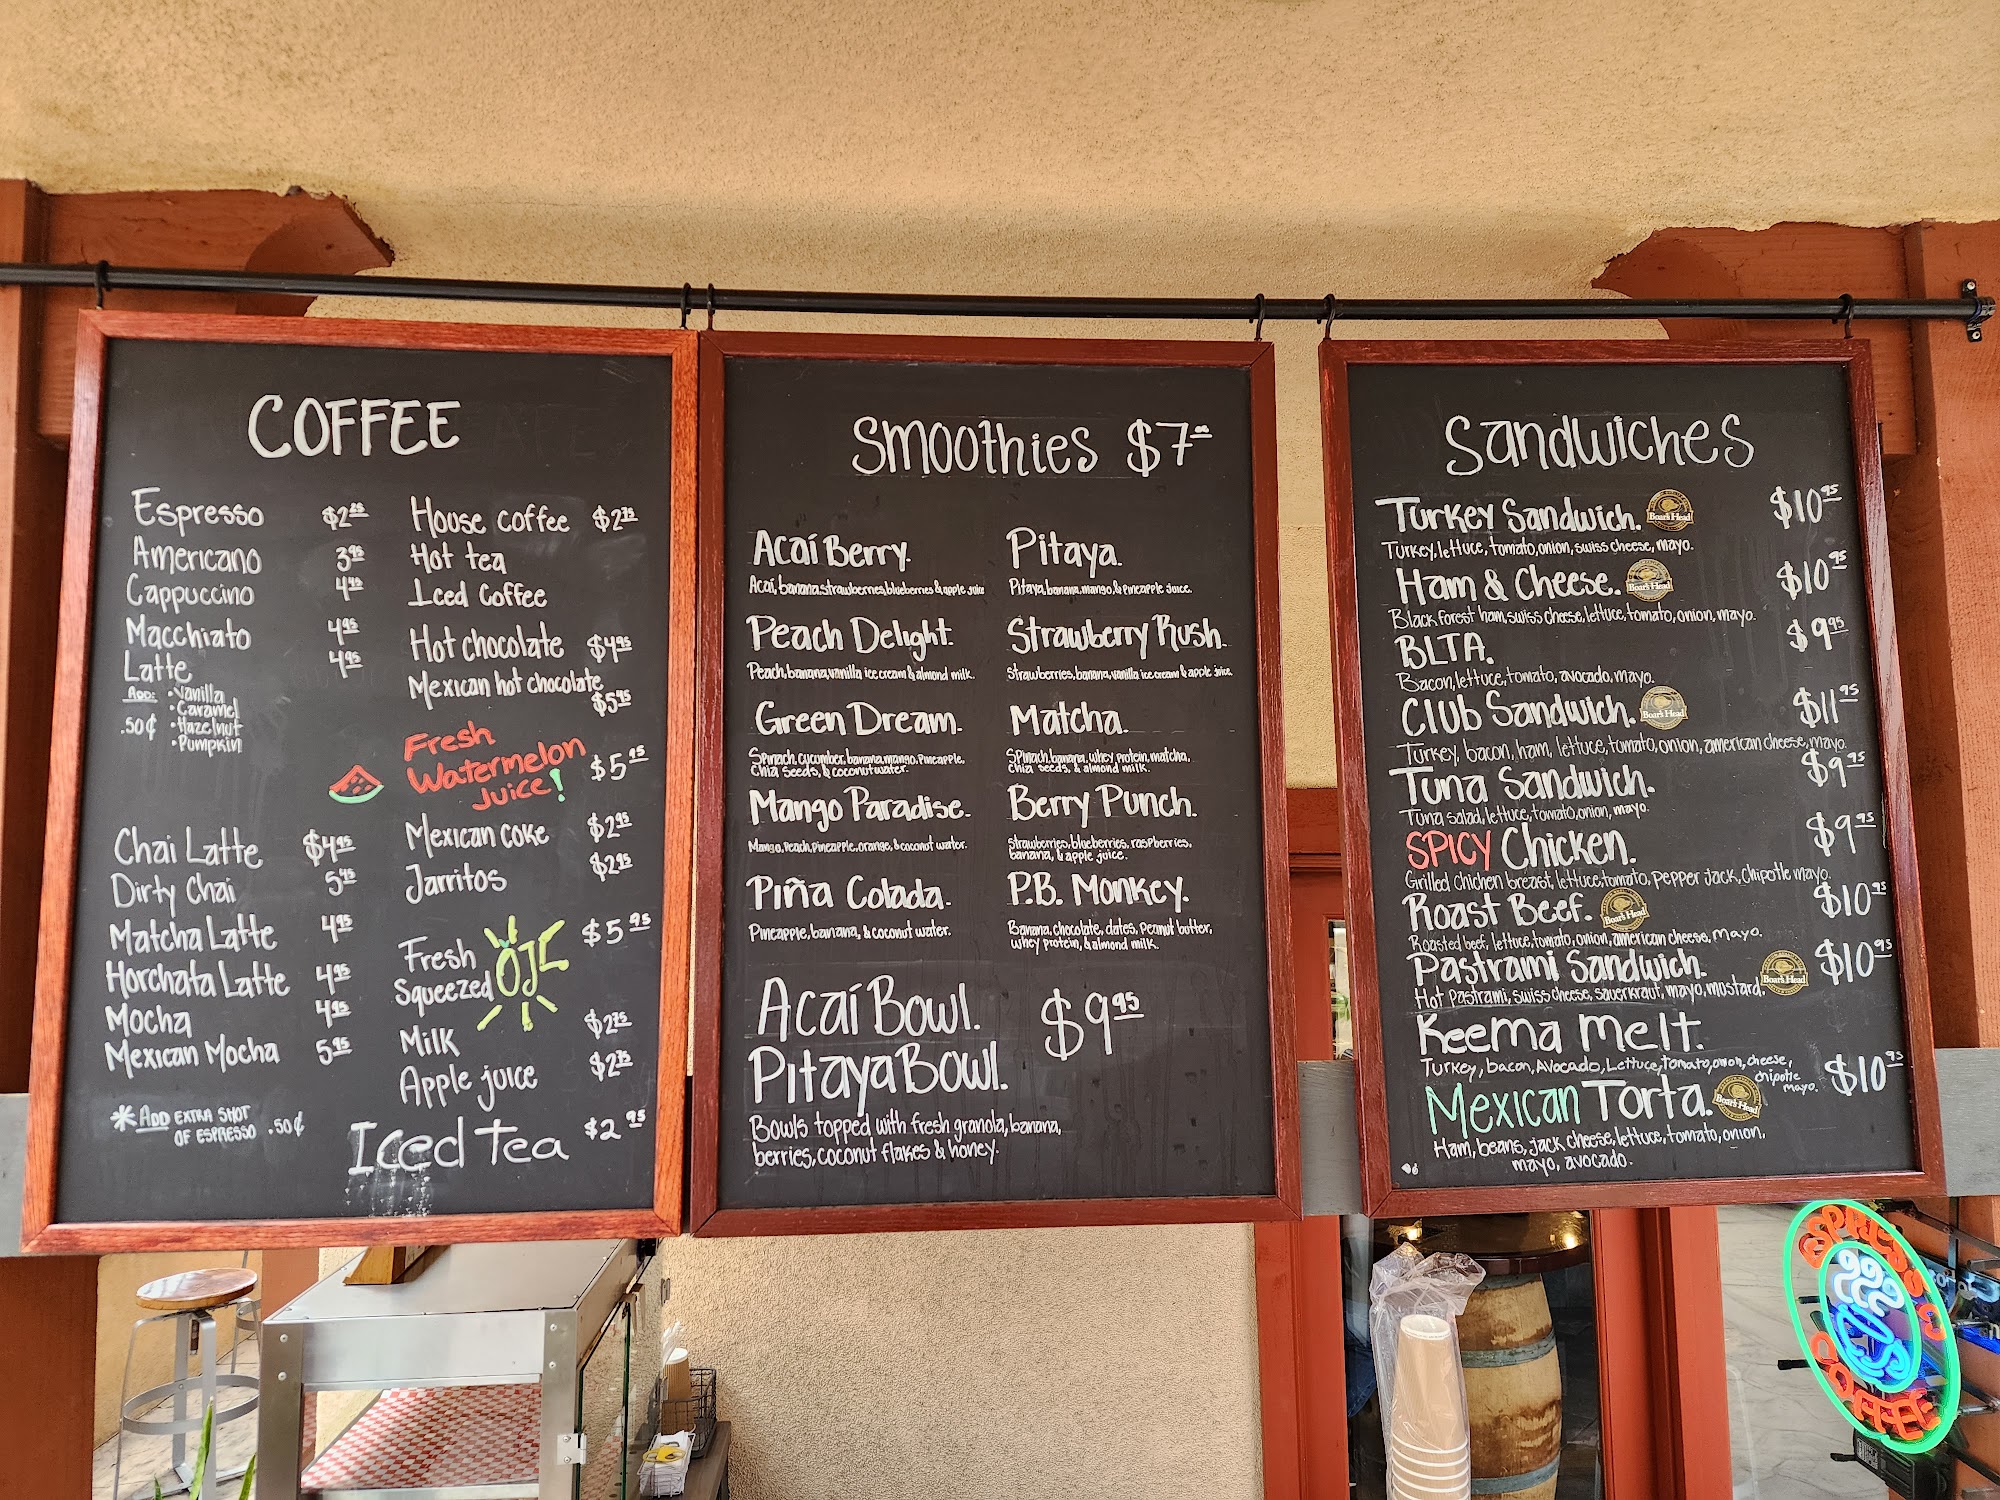 COFFEE
Espresso $2.25
Americano 3.95
Cappuccino 4.45
Macchiato 4.95
Latte 4.95
ADD: • Vanilla
• Caramel
.50¢ • Hazelnut
• Pumpkin
Chai Latte $4.95
Dirty Chai 5.45
Matcha Latte 4.95
Horchata Latte 4.95
Mocha 4.95
Mexican Mocha 5.95
*ADD EXTRA SHOT
OF ESPRESSO .50¢
House coffee $2.75
Hot tea
Iced Coffee
Hot chocolate $4.95
Mexican hot chocolate
$5.95
Fresh
Watermelon $5.95
Juice!
Mexican coke $2.95
Jarritos $2.95
Fresh
Squeezed OJ $5.95
Milk $2.75
Apple juice $2.75
Iced tea $2.95
Smoothies $7.00
Acaí Berry.
Acaí, banana, strawberries, blueberries & apple juice
Peach Delight.
Peach, banana, vanilla ice cream & almond milk.
Green Dream.
Spinach, cucumber, banana, mango, Pineapple,
chia seeds, & coconut water.
Mango Paradise.
Mango, Peach, Pineapple, orange, & coconut water.
Piña Colada.
Pineapple, banana, & coconut water.
Pitaya.
Pitaya, banana, mango, & Pineapple Juice.
Strawberry Rush.
Strawberries, banana, vanilla ice cream & apple juice.
Matcha.
Spinach, banana, whey protein, matcha,
chia seeds, & almond milk.
Berry Punch.
Strawberries, blueberries, raspberries,
banana, & apple juice.
P.B. Monkey.
Banana, chocolate, dates, Peanut butter,
whey protein, & almond milk.
Acaí Bowl.
Pitaya Bowl. $9.95
Bowls topped with fresh granola, banana,
berries, coconut flakes & honey.
Sandwiches
Turkey Sandwich. Boar's Head $10.95
Turkey, lettuce, tomato, onion, swiss cheese, mayo.
Ham & Cheese. Boar's Head $10.95
Black forest ham, swiss cheese, lettuce, tomato, onion, mayo.
BLTA. $9.95
Bacon, lettuce, tomato, avocado, mayo.
Club Sandwich. Boar's Head $11.95
Turkey, bacon, ham, lettuce, tomato, onion, american cheese, mayo.
Tuna Sandwich. $9.95
Tuna salad, lettuce, tomato, onion, mayo.
SPICY Chicken. $9.95
Grilled chicken breast, lettuce, tomato, Pepper Jack, chipotle mayo.
Roast Beef. Boar's Head $10.95
Roasted beef, lettuce, tomato, onion, american cheese, mayo.
Pastrami Sandwich. Boar's Head $10.95
Hot Pastrami, swiss cheese, sauerkraut, mayo, mostard.
Keema Melt.
Turkey, bacon, Avocado, Lettuce, Tomato, onion, cheese,
chipotle
mayo.
Mexican Torta. Boar's Head $10.95
Ham, beans, jack cheese, lettuce, tomato, onion,
mayo, avocado.
ESPRESSO
COFFEE